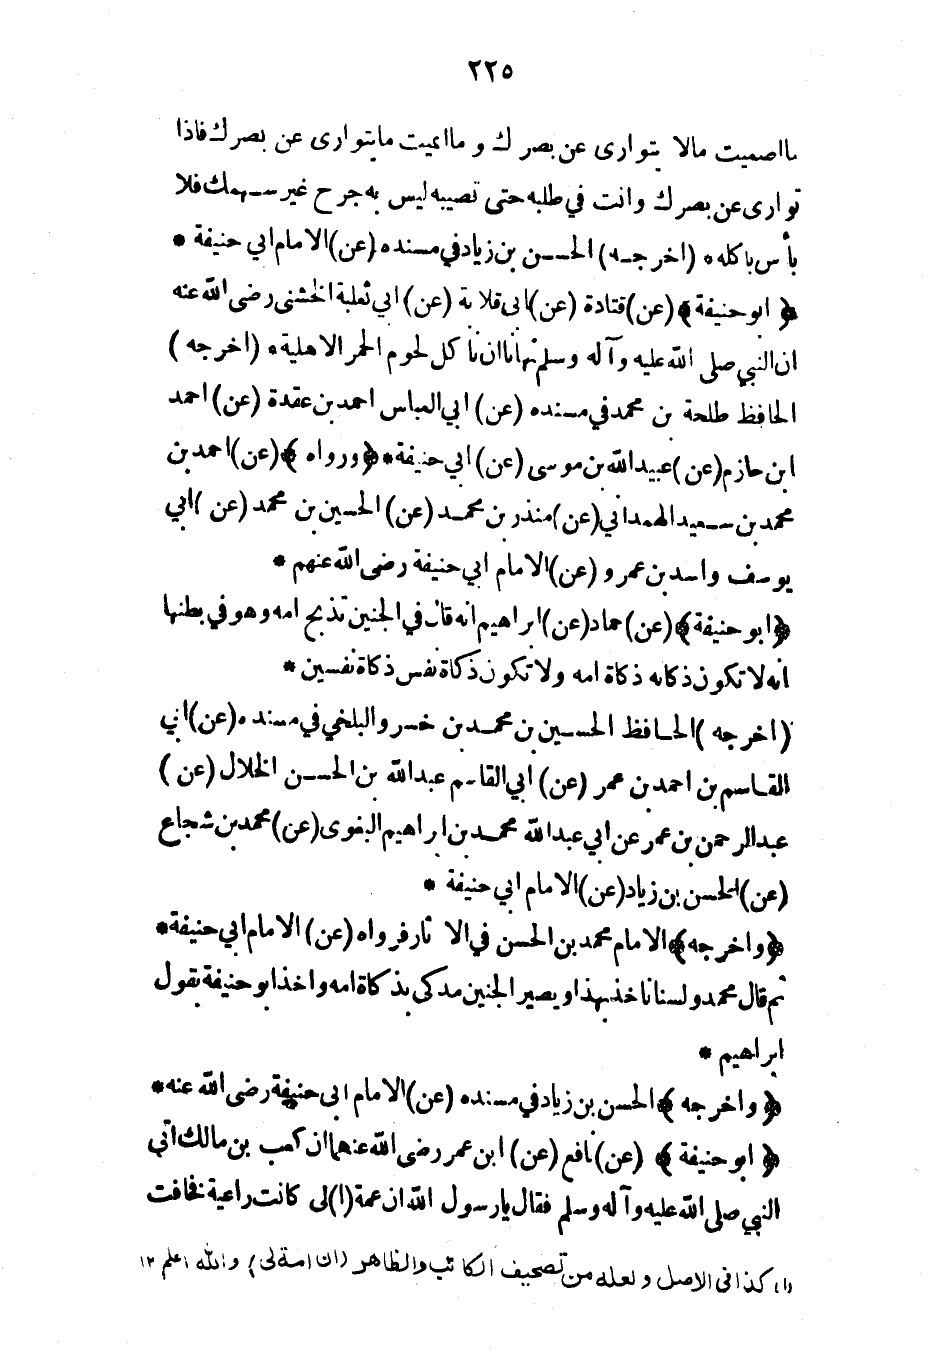 ٢٢٥
مااصميت مالا يتوارى عن بصرك و مااعميت مايتوارى عن بصرك فاذا
توارى عن بصرك وانت في طلبه حتى تصيبه ليس به جرح غير سهمك فلا
بأس باكله * (اخرجه) الحسن بن زياد في مسنده (عن) الامام ابي حنيفة *
﴿ ابو حنيفة ﴾ (عن) قتادة (عن) ابى قلابة (عن) ابي ثعلبة الخشنى رضى الله عنه
ان النبي صلى الله عليه وآله وسلم نهانا ان نأكل لحوم الحمر الاهلية * (اخرجه)
الحافظ طلحة بن محمد في مسنده (عن) ابي العباس احمد بن عقدة (عن) احمد
ابن حازم (عن) عبيد الله بن موسى (عن) ابي حنيفة * ﴿ ورواه ﴾ (عن) احمد بن
محمد بن سعيد الهمداني (عن) منذر بن محمد (عن) الحسين بن محمد (عن) ابي
يوسف واسد بن عمرو (عن) الامام ابي حنيفة رضى الله عنهم *
﴿ ابو حنيفة ﴾ (عن) حماد (عن) ابراهيم انه قال في الجنين تذبح امه وهو في بطنها
انه لا تكون ذكاته ذكاة امه ولا تكون ذكاة نفس ذكاة نفسين *
(اخرجه) الحافظ الحسين بن محمد بن خسرو البلخي في مسنده (عن) ابي
القاسم بن احمد بن عمر (عن) ابي القاسم عبد الله بن الحسن الخلال (عن)
عبد الرحمن بن عمر عن ابي عبد الله محمد بن ابراهيم البغوى (عن) محمد بن شجاع
(عن) الحسن بن زياد (عن) الامام ابي حنيفة *
﴿ واخرجه ﴾ الامام محمد بن الحسن في الآثار فرواه (عن) الامام ابي حنيفة *
ثم قال محمد ولسنا نأخذ بهذا ويصير الجنين مذكى بذكاة امه واخذ ابو حنيفة بقول
ابراهيم *
﴿ واخرجه ﴾ الحسن بن زياد في مسنده (عن) الامام ابى حنيفة رضى الله عنه *
﴿ ابو حنيفة ﴾ (عن) نافع (عن) ابن عمر رضى الله عنهما ان كعب بن مالك اتى
النبي صلى الله عليه وآله وسلم فقال يا رسول الله ان عمة (١) لى كانت راعية فخافت
(١) كذا في الاصل ولعله من تصحيف الكاتب والظاهر (ان امة لى) والله اعلم ١٢